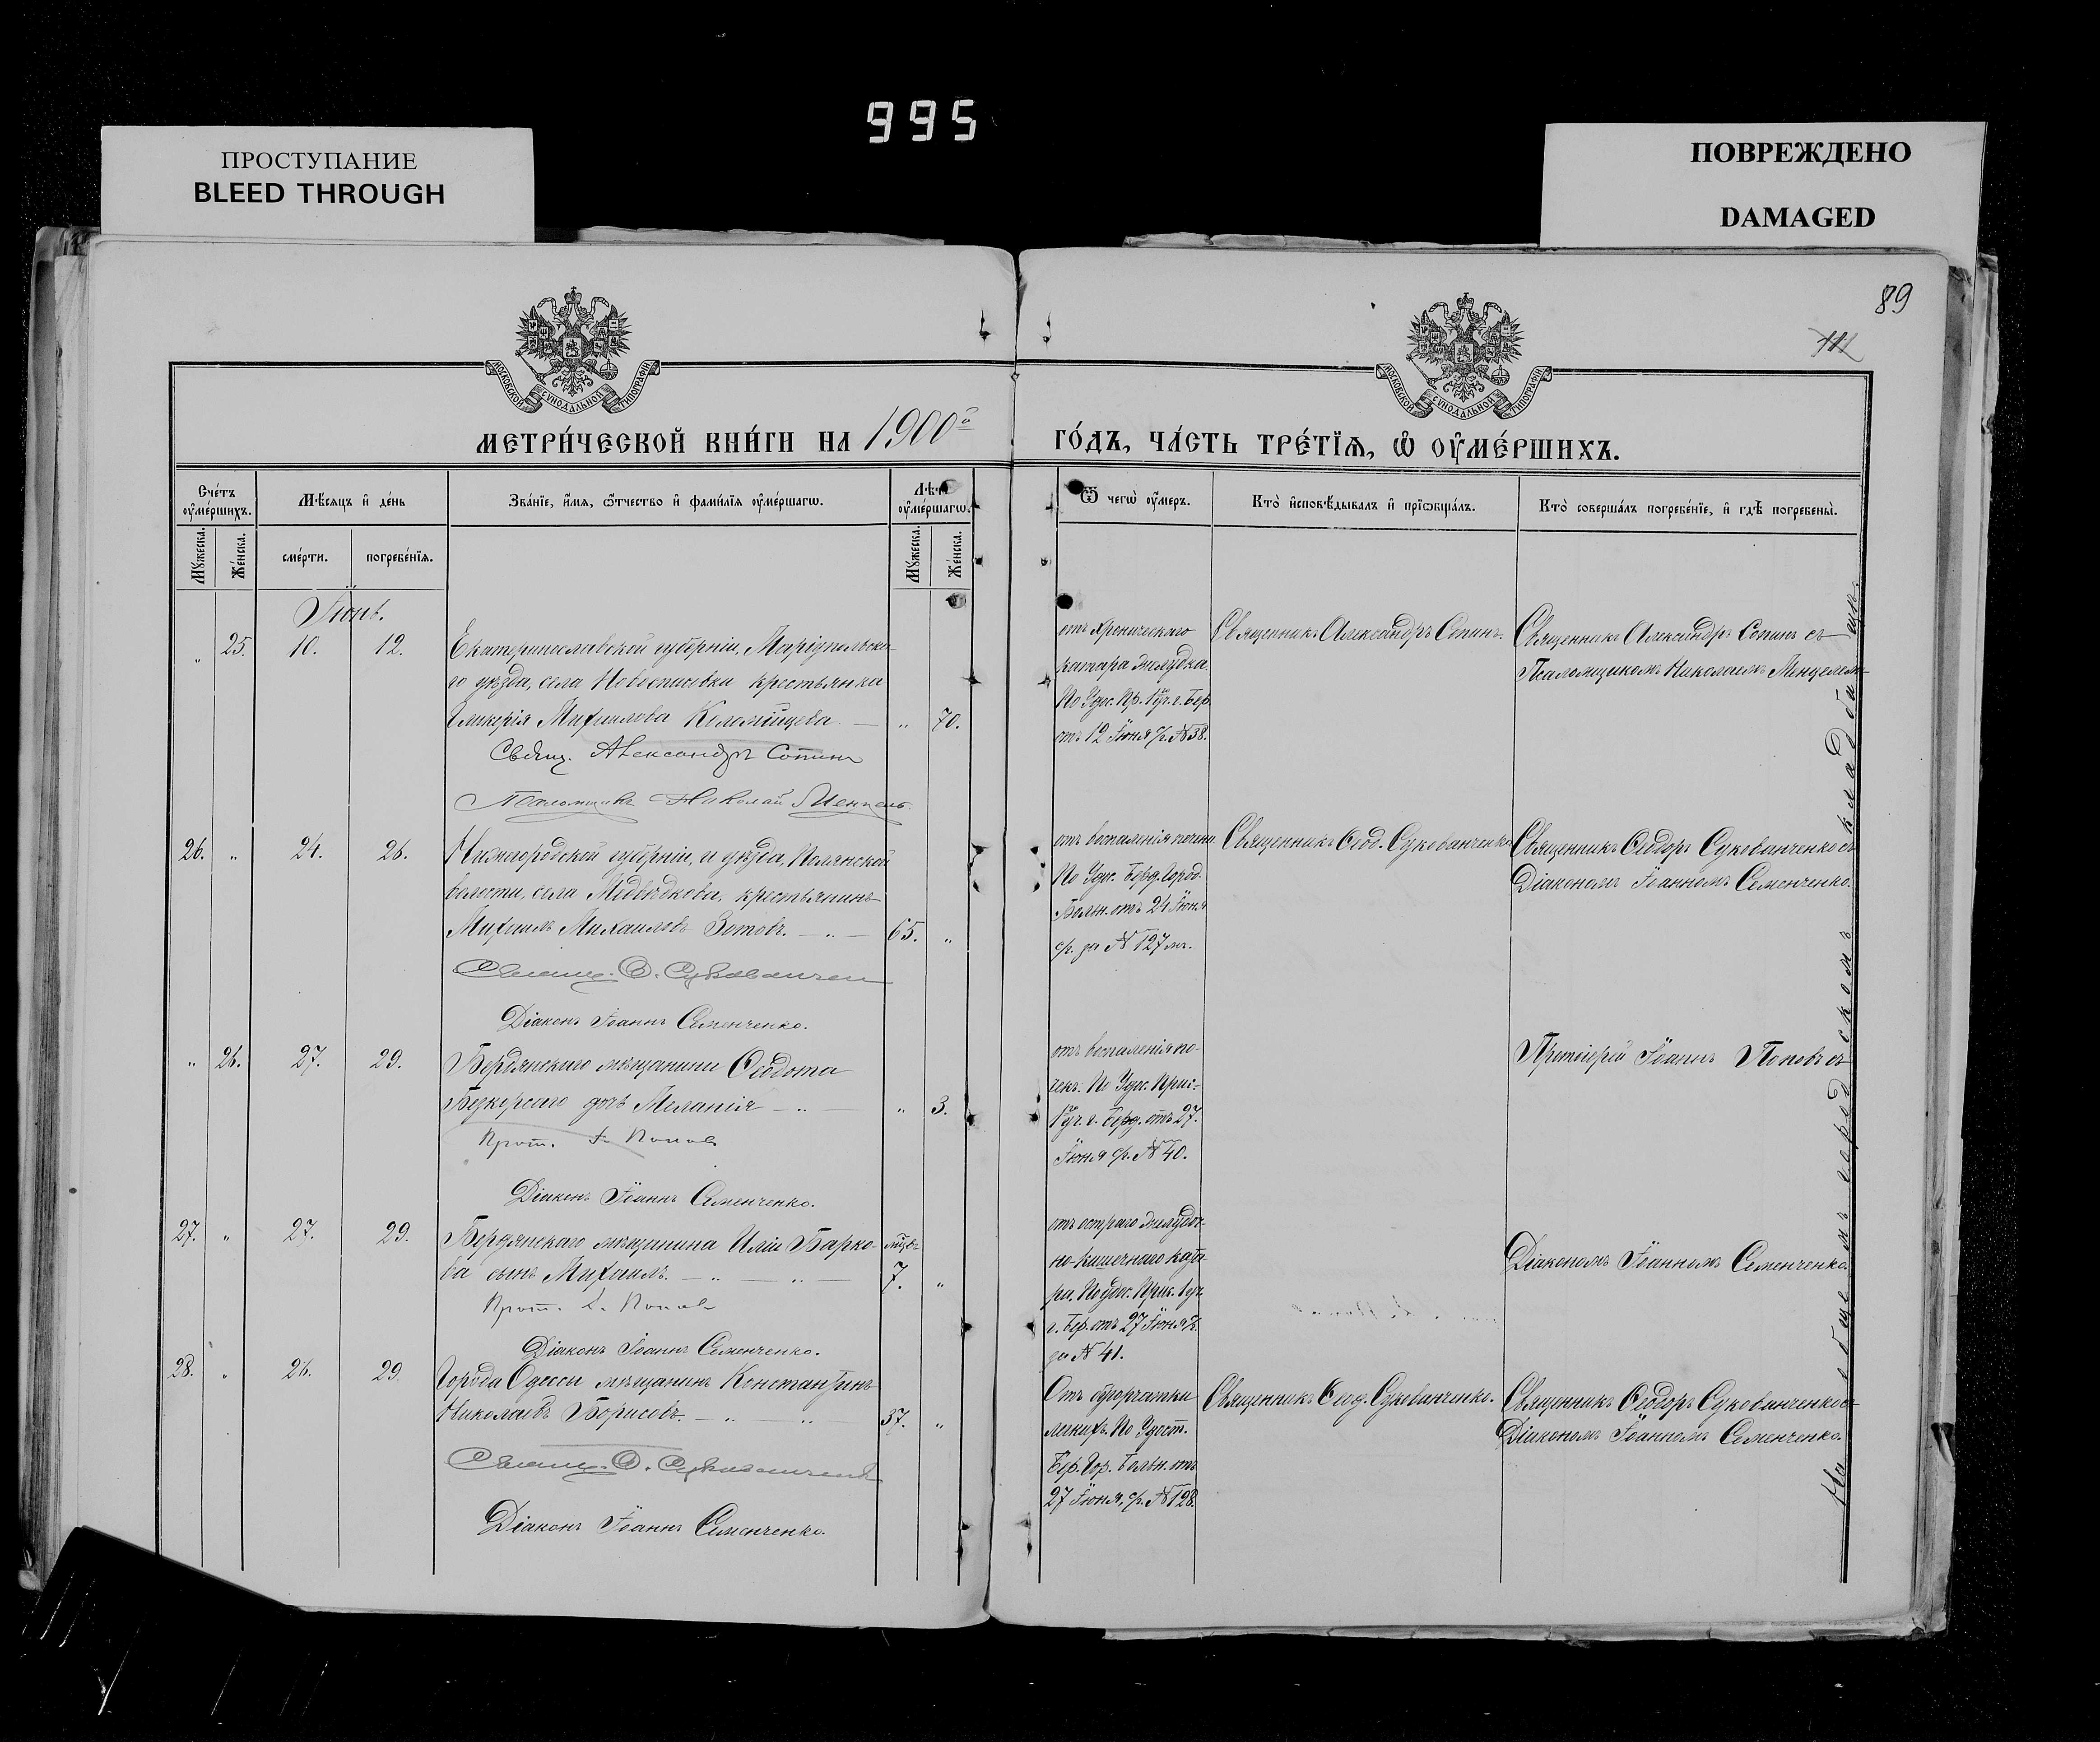 995
ПРОСТУПАНИЕ
BLEED THROUGH
ПОВРЕЖДЕНО
DAMAGED
89
111
МОСКОВСКОЙ СУНОДАЛЬНОЙ ТИПОГРАФІИ
МОСКОВСКОЙ СУНОДАЛЬНОЙ ТИПОГРАФІИ
МЕТРИ́ЧЕСКОЙ КНИ́ГИ НА 1900й
ГО́ДЪ, ЧА́СТЬ ТРЕ́ТЇѦ, Ѽ ОУ҆МЕ́РШИХЪ.
Сче́тъ оу҆ме́ршихъ.
Мѣ́сѧцъ и҆ де́нь
Зва́нїе, и҆́мѧ, ѿтчество и҆ фами́лїѧ оу҆ме́ршагѡ.
Лѣ́та оу҆ме́ршагѡ.
Ѿ чегѡ̀ оу҆́меръ.
Кто̀ и҆сповѣ́дывалъ и҆ прїѡбща́лъ.
Кто̀ соверша́лъ погребе́нїе, и҆ гдѣ̀ погребены̀.
Мꙋ́жеска.
Же́нска.
сме́рти.
погребе́нїѧ.
Мꙋ́жеска.
Же́нска.
Іюнь.
„ 25. 10. 12.
Екатеринославской губерніи, Маріупольска-
го уѣзда, села Новоспасовки крестьянка
Гликерія Михаилова Коломійцева — „ 70.
Свящ. Александръ Сопинъ
Псаломщикъ Николай Менцель
отъ хроническаго
катара желудка.
По Удос. Пр. 1 уч. г. Бер.
отъ 12 Іюня с/г. № 38.
Священникъ Александръ Сопинъ.
Священникъ Александръ Сопинъ съ
Псаломщикомъ Николаемъ Менцелем-
26. „ 24. 26.
Нижегородской губерніи, и уѣзда, Полянской
волости, села Медвѣдкова, крестьянинъ
Михаилъ Михаиловъ Зотовъ. — „ — 65. „
Свящ. Ѳ. Сукованчен
Діаконъ Іоаннъ Семенченко.
отъ воспаленія почки.
По Удос. Берд. Город.
Больн. отъ 24 Іюня
с/г. за № 127 мъ.
Священникъ Ѳеод. Сукованченко
Священникъ Ѳеодоръ Сукованченко съ
Діакономъ Іоанномъ Семенченко.
„ 26. 27. 29.
Бердянскаго мѣщанина Ѳеодота
дочь Меланія — „ — „ 3.
Прот. І. Поповъ
Діаконъ Іоаннъ Семенченко.
отъ воспаленія по-
чекъ. По Удос. Прис.
1 уч. г. Берд. отъ 27.
Іюня с/г. № 40.
Протоіерей Іоаннъ Поповъ съ
27. „ 27. 29.
Бердянскаго мѣщанина Иліи Барко-
ва сынъ Михаилъ. — „ — „ — мѣс. 7. „
Прот. І. Поповъ
Діаконъ Іоаннъ Семенченко.
отъ остраго желудоч-
но-кишечнаго ката-
ра. По удос. Прис. 1 уч.
г. Бер. отъ 27 Іюня с/г.
за № 41.
Діакономъ Іоанномъ Семенченко
28. „ 26. 29.
Города Одессы мѣщанинъ Константинъ
Николаевъ Борисовъ. — „ „ 37. „
Свящ. Ѳ. Сукованченко
Діаконъ Іоаннъ Семенченко.
Отъ бугорчатки
легкихъ. По Удост.
Бер. Гор. Больн. отъ
27 Іюня, с/г. № 128.
Священникъ Ѳеод. Сукованченко.
Священникъ Ѳеодоръ Сукованченко съ
Діакономъ Іоанномъ Семенченко.
На общемъ городскомъ кладбищѣ.